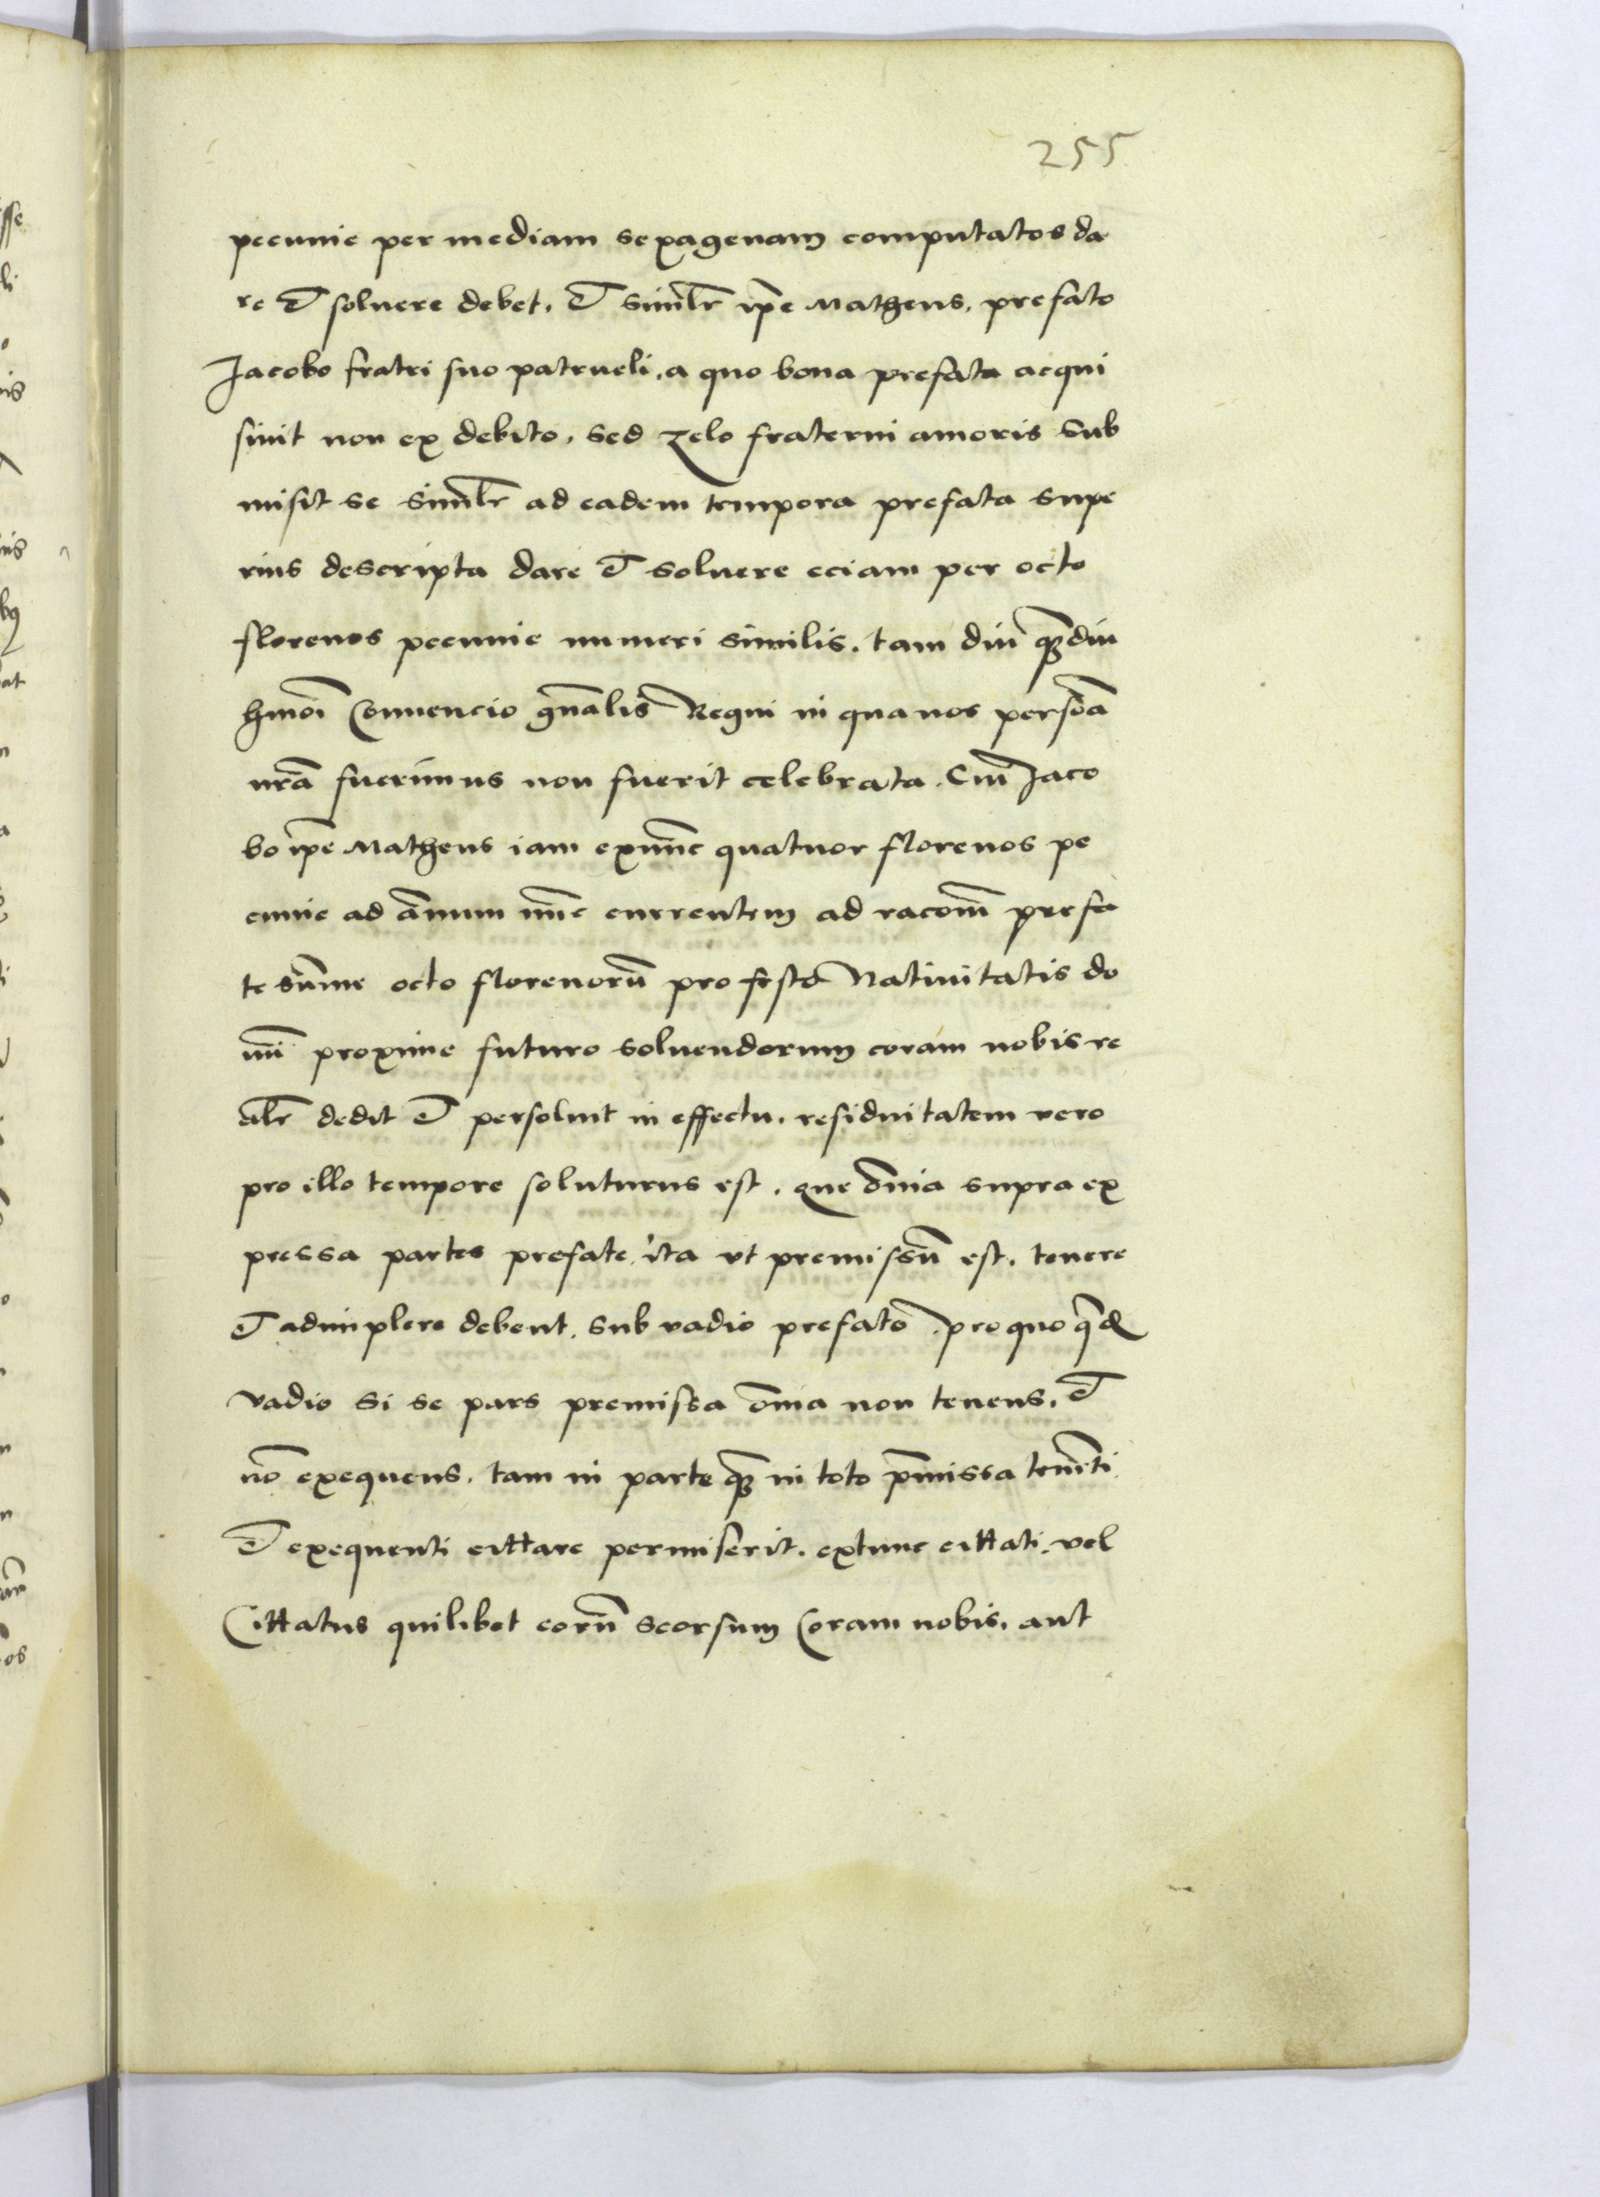 255
pecunie per mediam sexagenam computatos da
re et soluere debet. et simil̄r ip̄e Matheus, prefato
Jacobo fratri suo patrueli, a quo bona prefata acqui
siuit non ex debito, sed zelo fraterni amoris sub
misit se simil̄r ad eadem tempora prefata supe
rius descripta dare et soluere eciam per octo
florenos pecunie numeri similis. tam diu q̄ꝫdiu
hmōi Conuencio gn̄alis Regni in qua nos persōa
nr̄a fuerimus non fuerit celebrata. Cui Jaco
bo ip̄e Matheus iam exnūc quatuor florenos pe
cunie ad annum nūc currentem ad racōm̄ prefa
te sūme octo florenorū pro festo Natiuitatis do
mī proxime futuro soluendorum coram nobis re
al̄r dedit et persoluit in effectu. residuitatem vero
pro illo tempore soluturus est. que om̄ia supra ex
pressa partes prefate ita vt premissū est. tenere
et adimplere debent. sub vadio prefato. pro quoq̄dē
vadio si se pars premissa om̄ia non tenens. et
nō exequens. tam in parte q̄ꝫ in toto p̄missa tenēti
et exequenti cittare permiserit. extunc cittati. vel
Cittatus quilibet eorū seorsum Coram nobis. aut